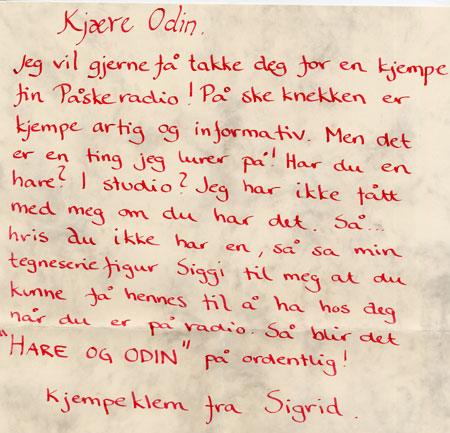 Kjære Odin.
Jeg vil gjerne få takke deg for en kjempe
fin Påskeradio! På ske knekken er
kjempe artig og informativ. Men det
er en ting jeg lurer på! Har du en
hare? I studio? Jeg har ikke fått
med meg om du har det. Så...
hvis du ikke har en, så sa min
tegneseriefigur Siggi til meg at du
kunne få hennes til å ha hos deg
når du er på radio. Så blir det
"HARE OG ODIN" på ordentlig!
Kjempeklem fra Sigrid.